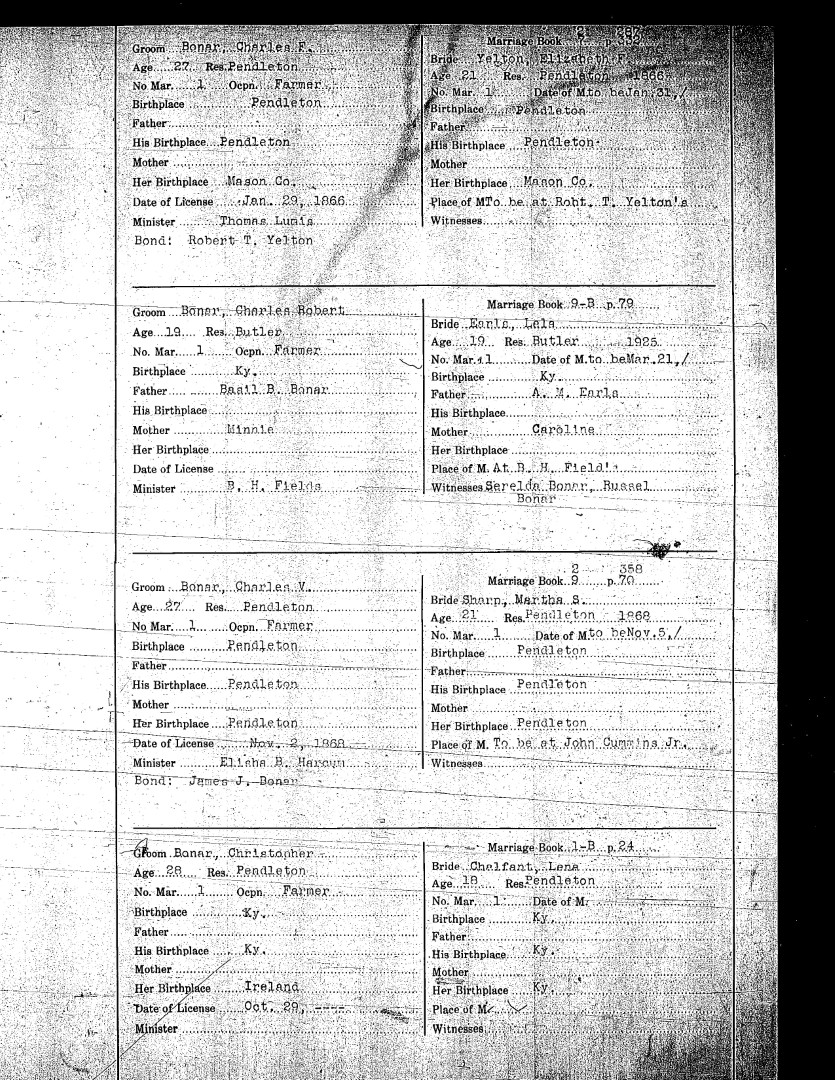 Groom Bonar, Charles F.
Age 27 Res. Pendleton
No Mar. 1 Ocpn. Farmer
Birthplace Pendleton
Father
His Birthplace Pendleton
Mother
Her Birthplace Mason Co.
Date of License Jan. 29, 1866
Minister Thomas Lumis
Bond: Robert T. Yelton
2 267
Marriage Book p. 352
Bride Yelton, Elizabeth F.
Age 21 Res. Pendleton 1866
No. Mar. 1 Date of M. to be Jan. 31,/
Birthplace Pendleton
Father
His Birthplace Pendleton
Mother
Her Birthplace Mason Co.
Place of M To be at Robt. T. Yelton's
Witnesses
Groom Bonar, Charles Robert
Age 19 Res. Butler
No. Mar. 1 Ocpn. Farmer
Birthplace Ky.
Father Basil B. Bonar
His Birthplace
Mother Minnie
Her Birthplace
Date of License
Minister B. H. Fields
Marriage Book 9-B p. 79
Bride Earls, Lela
Age 19 Res. Butler 1925
No. Mar. 1 Date of M. to be Mar. 21,/
Birthplace Ky.
Father A. M. Earls
His Birthplace
Mother Caroline
Her Birthplace
Place of M. At B. H. Field's
Witnesses Serelda Bonar, Russel
Bonar
Groom Bonar, Charles V.
Age 27 Res. Pendleton
No Mar. 1 Ocpn. Farmer
Birthplace Pendleton
Father
His Birthplace Pendleton
Mother
Her Birthplace Pendleton
Date of License Nov. 2, 1868
Minister Elisha B. Harcum
Bond: James J. Bonar
2 358
Marriage Book 9 p. 70
Bride Sharp, Martha S.
Age 21 Res. Pendleton 1868
No. Mar. 1 Date of M. to be Nov. 5,/
Birthplace Pendleton
Father
His Birthplace Pendleton
Mother
Her Birthplace Pendleton
Place of M. To be at John Cummins Jr.
Witnesses
Groom Bonar, Christopher
Age 28 Res. Pendleton
No. Mar. 1 Ocpn. Farmer
Birthplace Ky.
Father
His Birthplace Ky.
Mother
Her Birthplace Ireland
Date of License Oct. 29, ----
Minister
Marriage Book 1-B p. 24
Bride Chalfant, Lena
Age 18 Res. Pendleton
No. Mar. 1 Date of M.
Birthplace Ky.
Father
His Birthplace Ky.
Mother
Her Birthplace Ky.
Place of M.
Witnesses